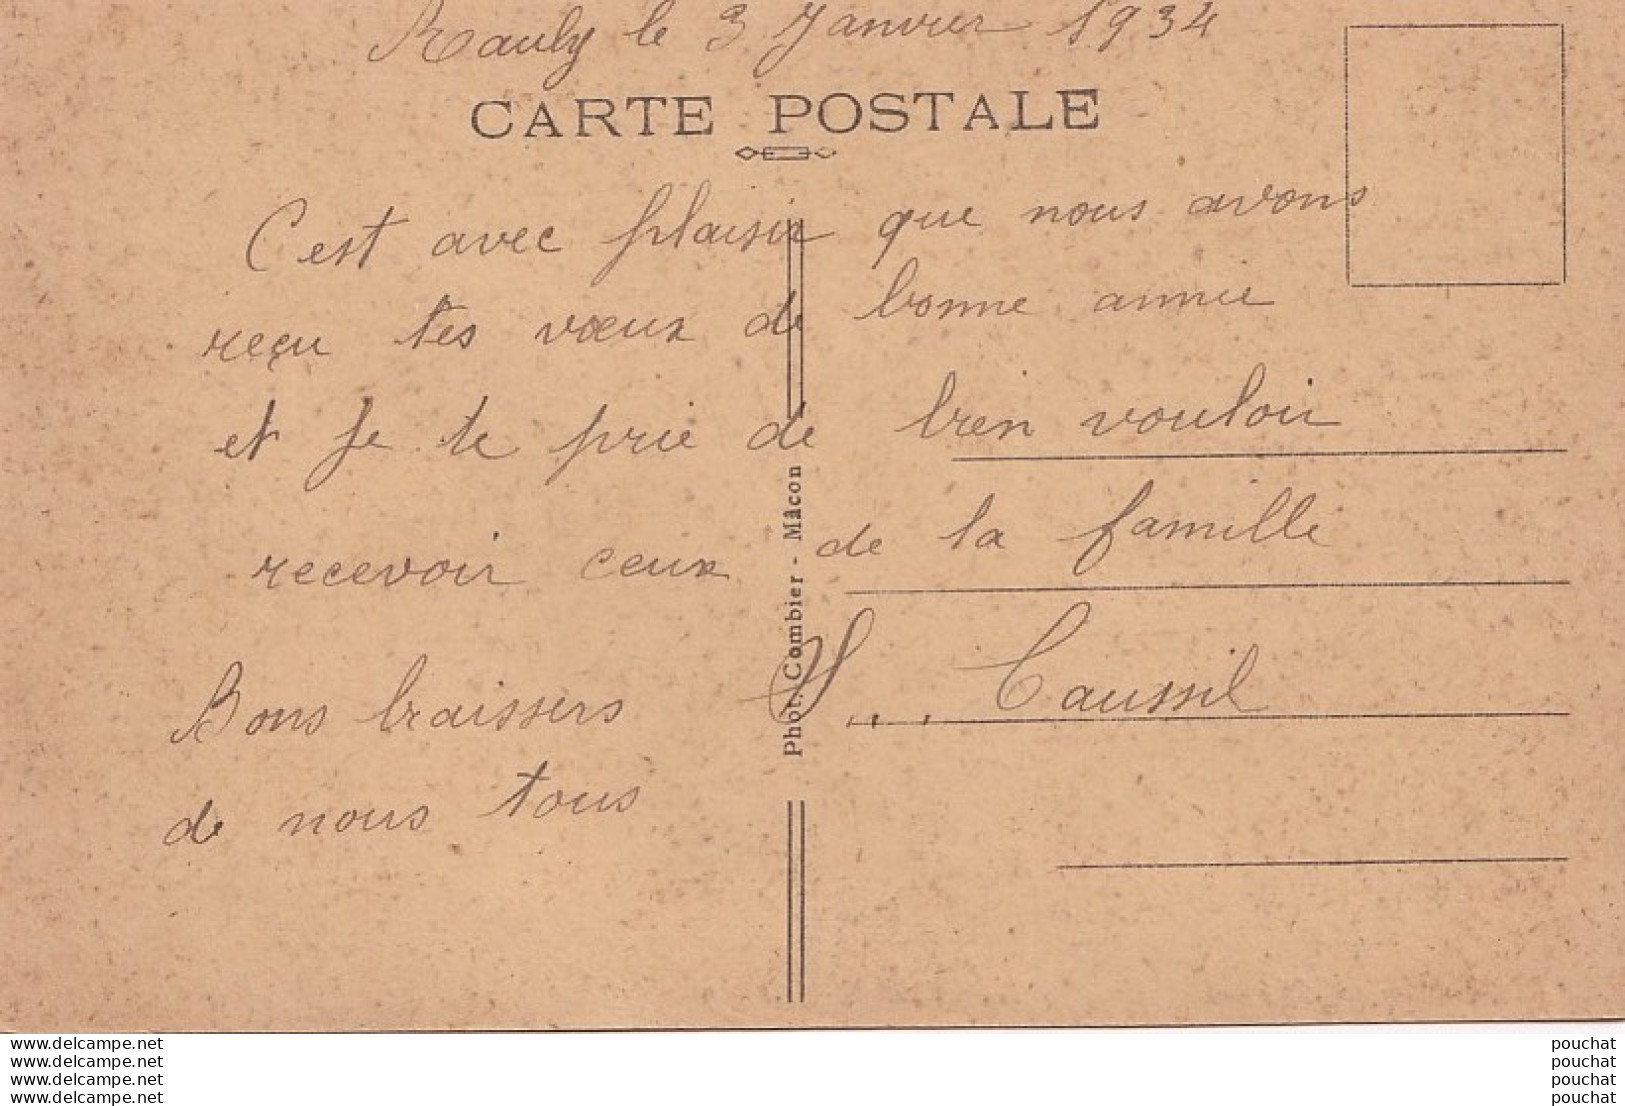 Rauly le 3 Janvier 1934
CARTE POSTALE
C'est avec plaisir que nous avons
reçu tes vœux de bonne année
et Je te prie de bien vouloir
recevoir ceux de la famille
Caussil
Bons braissers
de nous tous
Phot. Combier - Mâcon
www.delcampe.net
www.delcampe.net
www.delcampe.net
www.delcampe.net
pouchat
pouchat
pouchat
pouchat